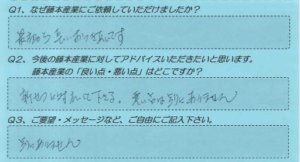 Q1、なぜ藤本産業にご依頼していただけましたか？
Q2、今後の藤本産業に対してアドバイスいただきたいと思います。
藤本産業の「良い点・悪い点」はどこですか？
親切に対応して下さる。悪い点は別にありません
Q3、ご要望・メッセージなど、ご自由にご記入下さい。
別にありません